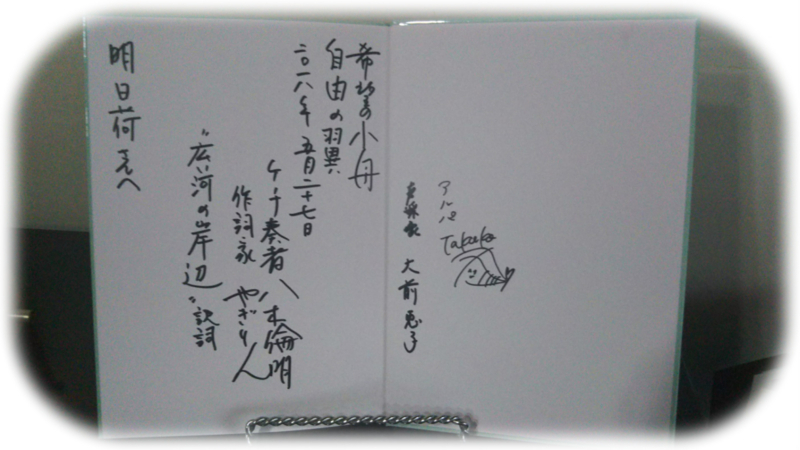 アルパ Takako
声楽家 大前恵子
希望の小舟
自由の翼
二〇一八年 五月二十七日
ケーナ奏者 八木倫明
作詞家 やぎりん
"広い河の岸辺" 訳詞
明日荷さんへ